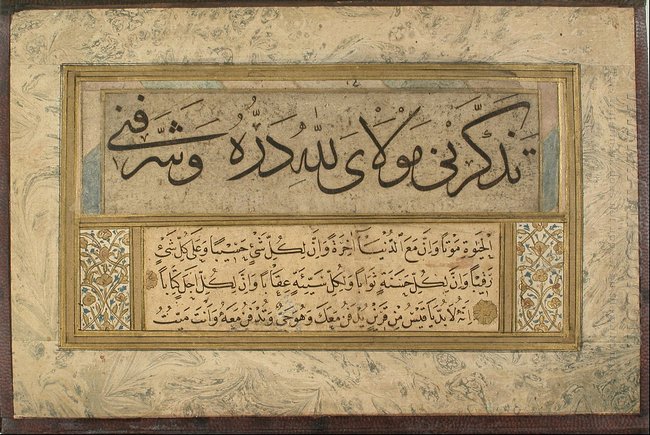 تَذَكَّرَنِي مَوْلَايَ لِلّٰهِ دَرُّهُ وَشَرَّفَنِي
الحَيٰوةِ مَوْتاً وَاِنَّ مَعَ الدُّنْيَا اٰخِرَةً وَاِنَّ لِكُلِّ شَئٍ حَسِيْباً وَعَلٰى كُلِّ شَئٍ
رَقِيْباً وَاِنَّ لِكُلِّ حَسَنَةٍ ثَوَاباً وَلِكُلِّ سَيِّئَةٍ عِقَاباً وَاِنَّ لِكُلِّ اَجَلٍ كِتَاباً
اِنَّهُ لَا بُدَّ يَا قَيْسُ مِنْ قَرِيْنٍ يُدْفَنُ مَعَكَ وَهُوَ حَيٌّ وَتُدْفَنُ مَعَهُ وَاَنْتَ مَيِّتٌ